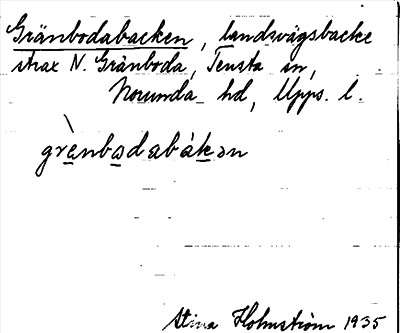 Gränbodabacken, landsvägsbacke
strax N. Gränboda, Tensta sn,
Norunda hd, Upps. l.
grènbodabákən
Stina Holmström 1935